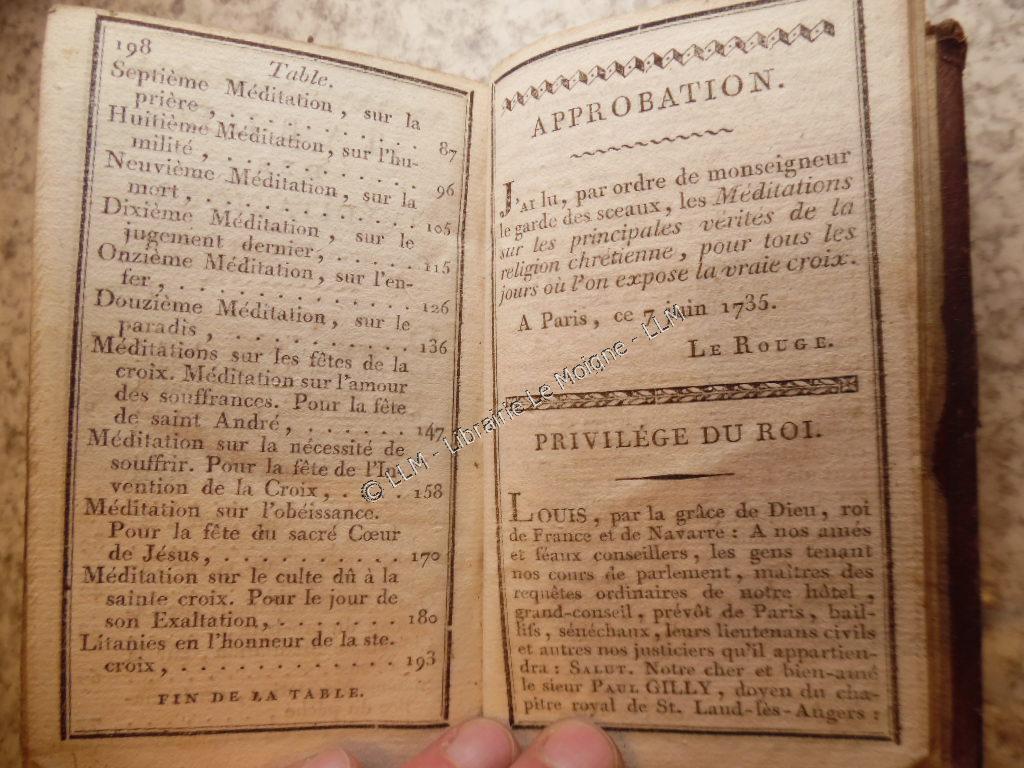 198
Table.
Septième Méditation, sur la
prière, . . . . . . . . . . . 87
Huitième Méditation, sur l'hu-
milité, . . . . . . . . . . . 96
Neuvième Méditation, sur la
mort, . . . . . . . . . . . 105
Dixième Méditation, sur le
jugement dernier, . . . . . 115
Onzième Méditation, sur l'en-
fer, . . . . . . . . . . . . 126
Douzième Méditation, sur le
paradis, . . . . . . . . . . 136
Méditations sur les fêtes de la
croix. Méditation sur l'amour
des souffrances. Pour la fête
de saint André, . . . . . . 147
Méditation sur la nécessité de
souffrir. Pour la fête de l'In-
vention de la Croix, . . . . 158
Méditation sur l'obéissance.
Pour la fête du sacré Cœur
de Jésus, . . . . . . . . . . 170
Méditation sur le culte dû à la
sainte croix. Pour le jour de
son Exaltation, . . . . . . . 180
Litanies en l'honneur de la ste.
croix, . . . . . . . . . . . . 193
FIN DE LA TABLE.
APPROBATION.
J'AI lu, par ordre de monseigneur
le garde des sceaux, les Méditations
sur les principales vérités de la
religion chrétienne, pour tous les
jours où l'on expose la vraie croix.
A Paris, ce 7 juin 1735.
LE ROUGE.
PRIVILÉGE DU ROI.
LOUIS, par la grâce de Dieu, roi
de France et de Navarre : A nos amés
et féaux conseillers, les gens tenant
nos cours de parlement, maîtres des
requêtes ordinaires de notre hôtel,
grand-conseil, prévôt de Paris, bail-
lifs, sénéchaux, leurs lieutenans civils
et autres nos justiciers qu'il appartien-
dra : SALUT. Notre cher et bien-amé
le sieur PAUL GILLY, doyen du cha-
pitre royal de St. Laud-lès-Angers :
© LLM - Librairie Le Moigne - LLM